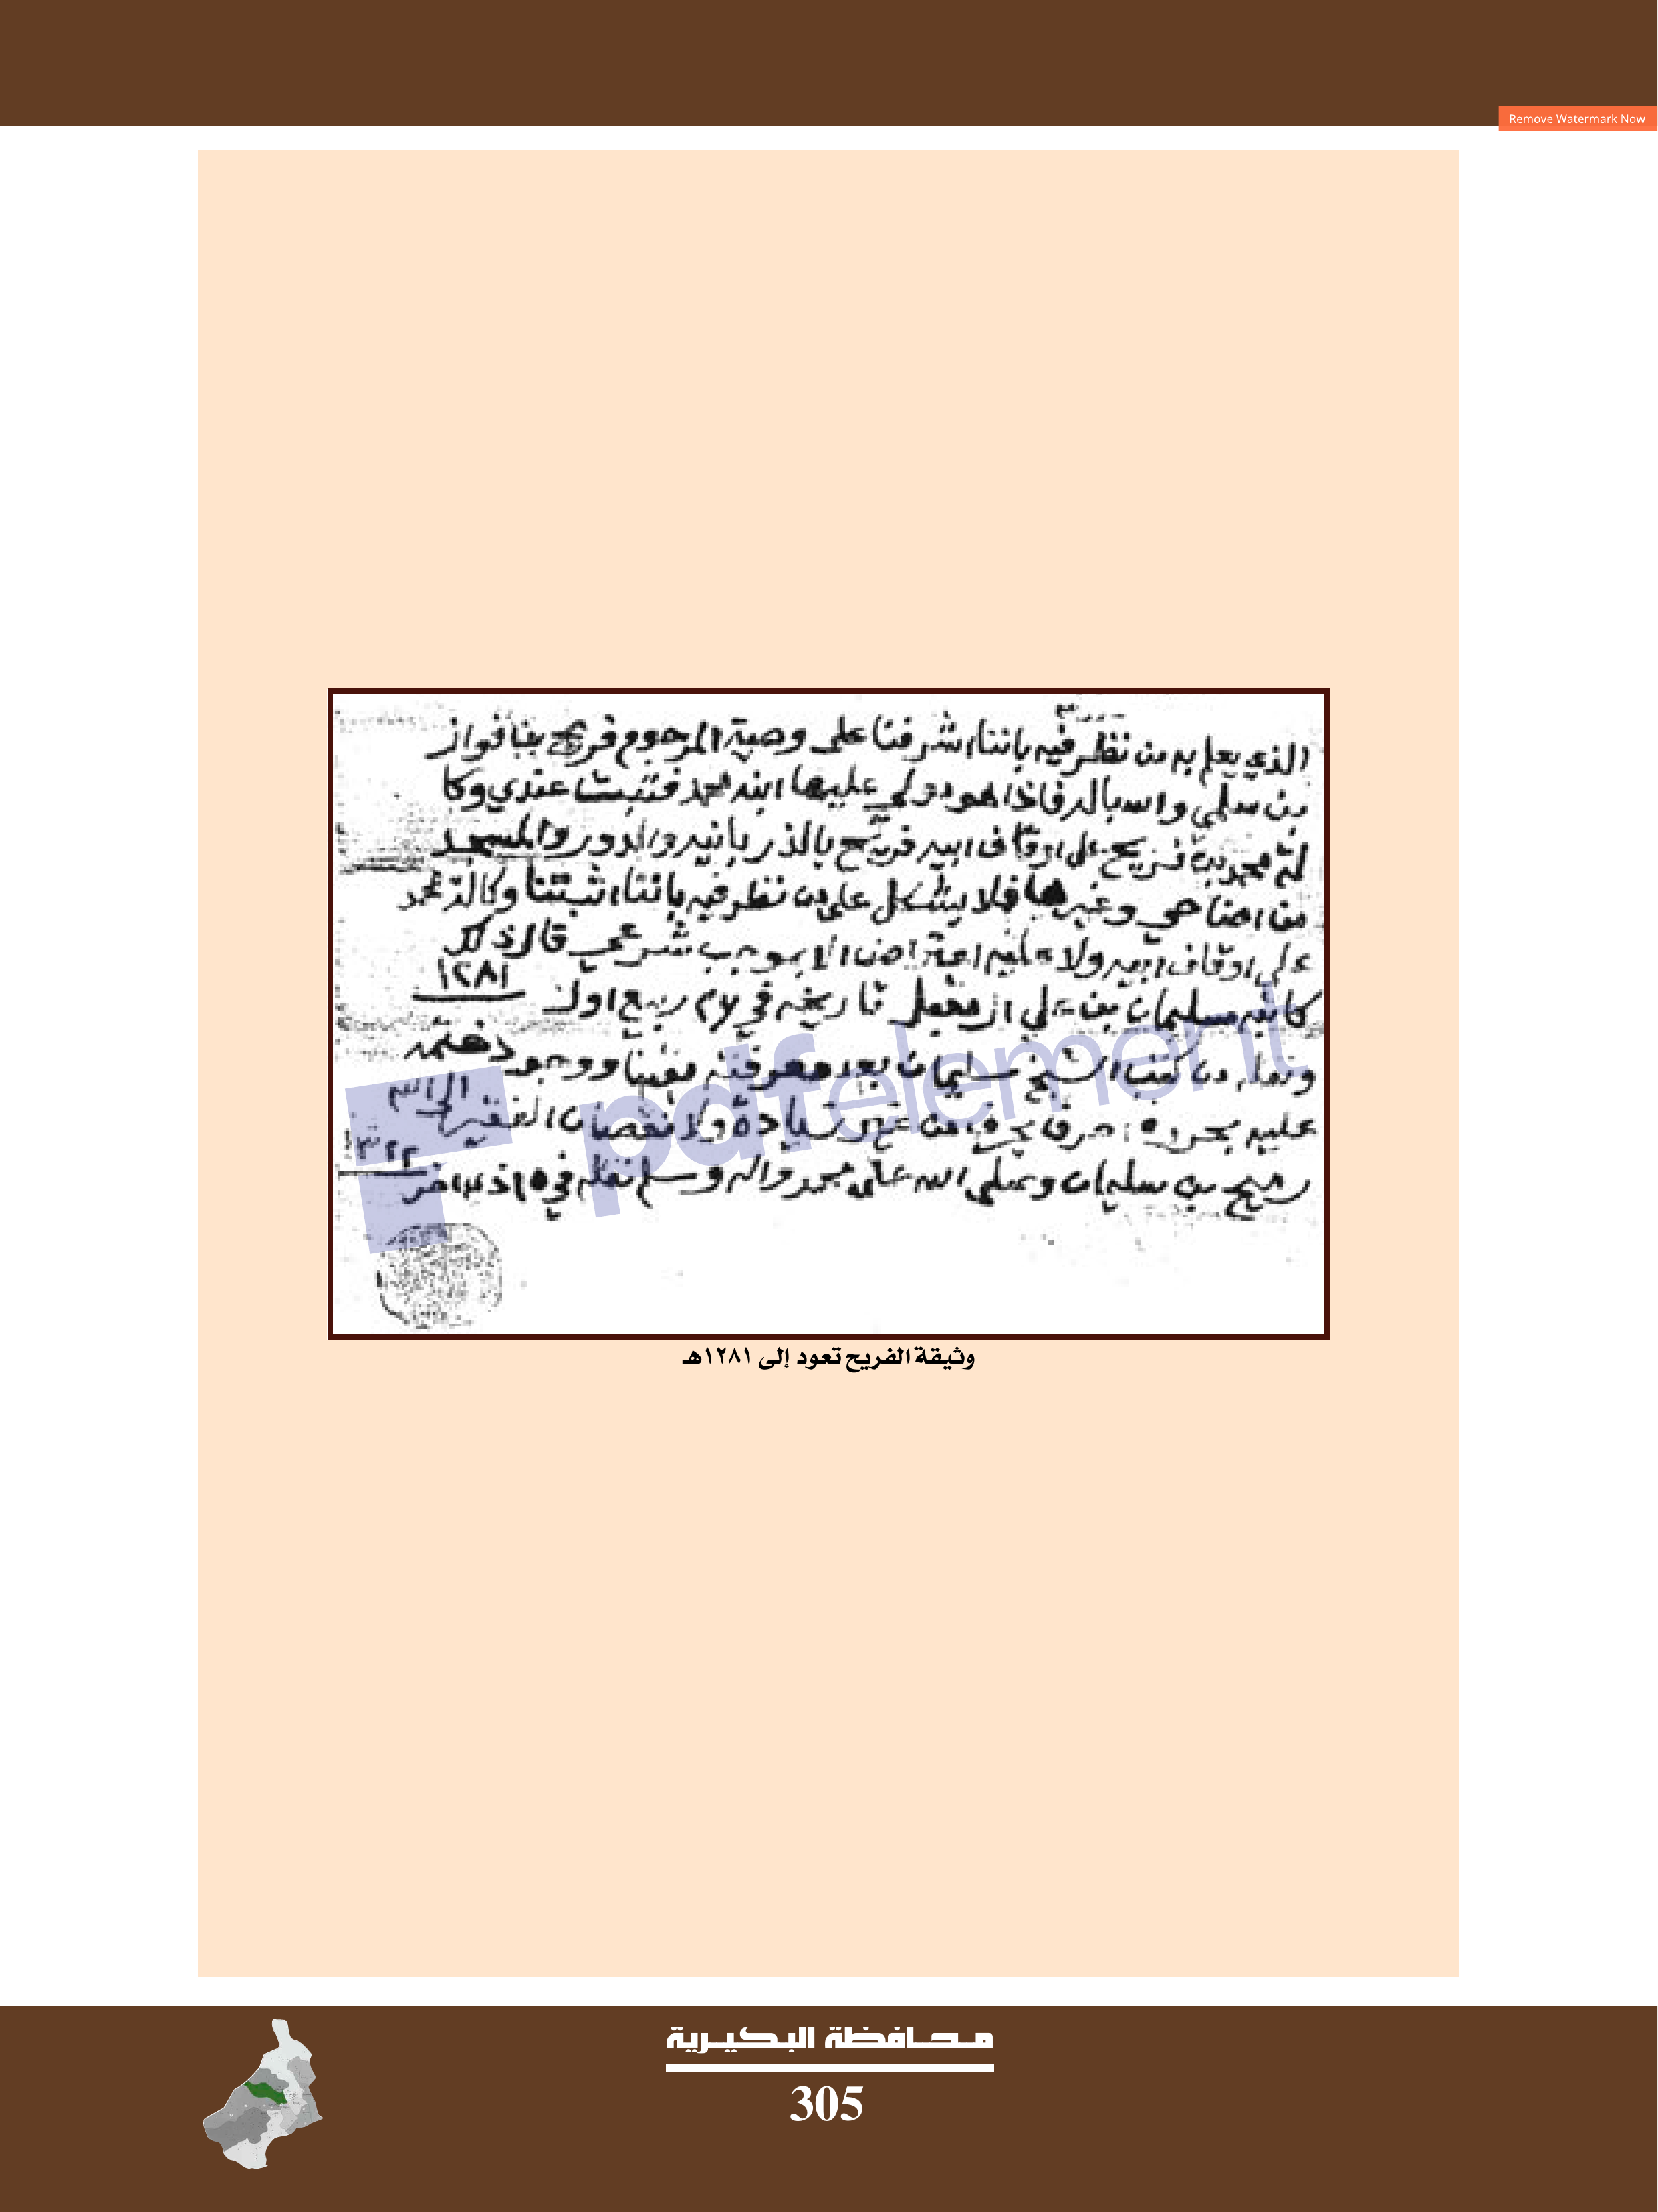 Remove Watermark Now
الذي يعلم به من نظر فيه باننا اشرفنا على وصية المرحوم فريح بنا فواز
من سلمي واسباله فاذا هو مولي عليها ابنه محمد فثبت عندي وكا
لة محمد بن فريح على اوقاف ابيه فريح بالذربانيه والدور والمسجد
من اضاحي وغيرها فلا يشكل على من نظر فيه باننا اثبتنا وكالة محمد
على اوقاف ابيه ولا عليه اعتراض الا بموجب شرعي قال ذلك
كاتبه سليمان بن علي المقبل تاريخه في ٢٦ ربيع اول ١٢٨١
ونقله من كتب الشيخ سليمان بعد معرفته يقينا ووجود ختمه
عليه بحروفه حرفا بحرف من غير زيادة ولا نقصان الفقير الى الله
رميح بن سليمان وصلى الله على محمد واله وسلم نقله في ١٥
pdfelement
وثيقة الفريح تعود إلى ١٢٨١هـ
محافظة البكيرية
305